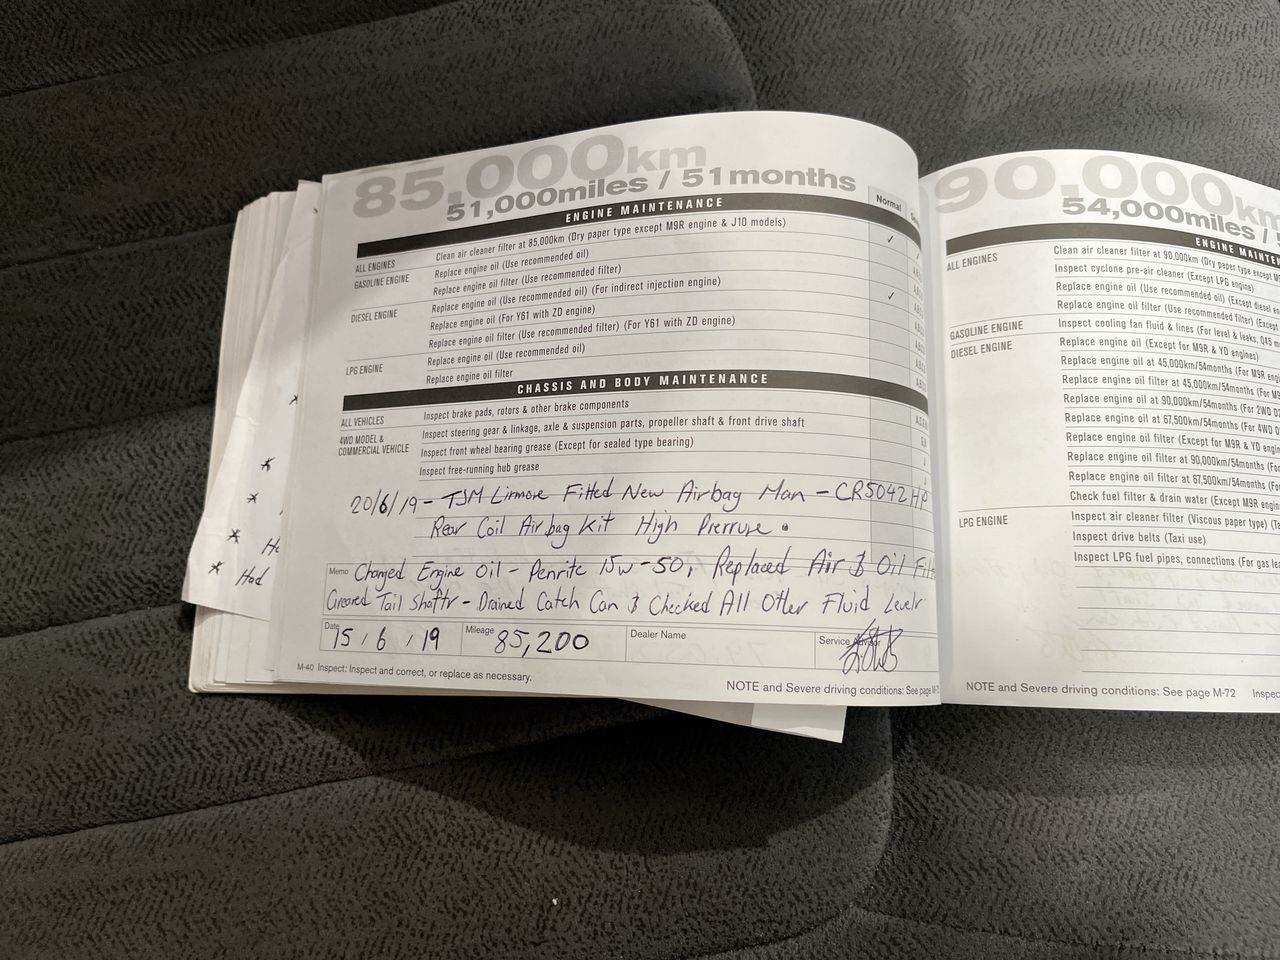 85,000km
51,000miles / 51months
Normal
ENGINE MAINTENANCE
ALL ENGINES Clean air cleaner filter at 85,000km (Dry paper type except M9R engine & J10 models) ✓
GASOLINE ENGINE Replace engine oil (Use recommended oil)
Replace engine oil filter (Use recommended filter)
DIESEL ENGINE Replace engine oil (Use recommended oil) (For indirect injection engine) ✓
Replace engine oil (For Y61 with ZD engine)
Replace engine oil filter (Use recommended filter) (For Y61 with ZD engine)
LPG ENGINE Replace engine oil (Use recommended oil)
Replace engine oil filter
CHASSIS AND BODY MAINTENANCE
ALL VEHICLES Inspect brake pads, rotors & other brake components
4WD MODEL & COMMERCIAL VEHICLE Inspect steering gear & linkage, axle & suspension parts, propeller shaft & front drive shaft
Inspect front wheel bearing grease (Except for sealed type bearing)
Inspect free-running hub grease
20/6/19 - TJM Lismore Fitted New Airbag Man - CR5042HP
Rear Coil Airbag Kit High Pressure.
Memo Changed Engine Oil - Penrite 15w-50, Replaced Air & Oil Filt
Greased Tail Shafts - Drained Catch Can & Checked All Other Fluid Levels
Date 15/6/19 Mileage 85,200 Dealer Name Service Advisor
M-40 Inspect: Inspect and correct, or replace as necessary.
NOTE and Severe driving conditions: See page M-7
* 
*
*
* Ha
* Had
90,000km
54,000miles /
ENGINE MAINTEN
ALL ENGINES Clean air cleaner filter at 90,000km (Dry paper type except M
Inspect cyclone pre-air cleaner (Except LPG engine)
Replace engine oil (Use recommended oil) (Except diesel en
Replace engine oil filter (Use recommended filter) (Except
GASOLINE ENGINE Inspect cooling fan fluid & lines (For level & leaks, Q45 m
DIESEL ENGINE Replace engine oil (Except for M9R & YD engines)
Replace engine oil at 45,000km/54months (For M9R eng
Replace engine oil filter at 45,000km/54months (For M9
Replace engine oil at 90,000km/54months (For 2WD D
Replace engine oil at 67,500km/54months (For 4WD D
Replace engine oil filter (Except for M9R & YD engines
Replace engine oil filter at 90,000km/54months (Fo
Replace engine oil filter at 67,500km/54months (Fo
Check fuel filter & drain water (Except M9R engine
LPG ENGINE Inspect air cleaner filter (Viscous paper type) (Ta
Inspect drive belts (Taxi use)
Inspect LPG fuel pipes, connections (For gas lea
NOTE and Severe driving conditions: See page M-72 Inspec